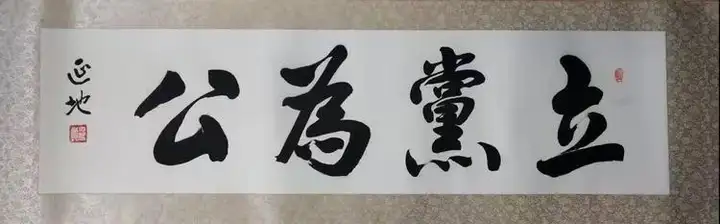 立黨為公
延地